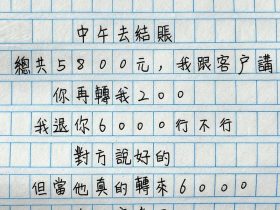 中午去結賬
總共5800元，我跟客戶講
你再轉我200
我退你6000行不行
對方說好的
但當他真的轉來6000